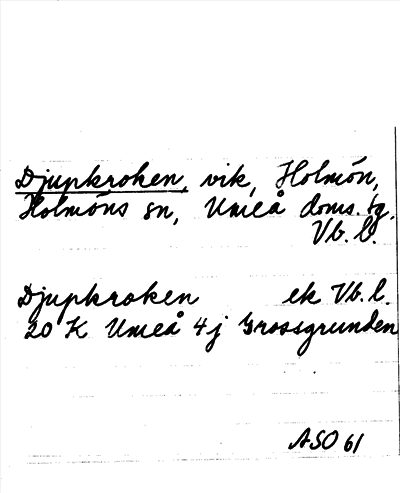 Djupkroken, vik, Holmön,
Holmöns sn, Umeå doms. tg,
Vb. l.
Djupkroken ek Vb. l.
20 K Umeå 4j Grossgrunden
ASO 61